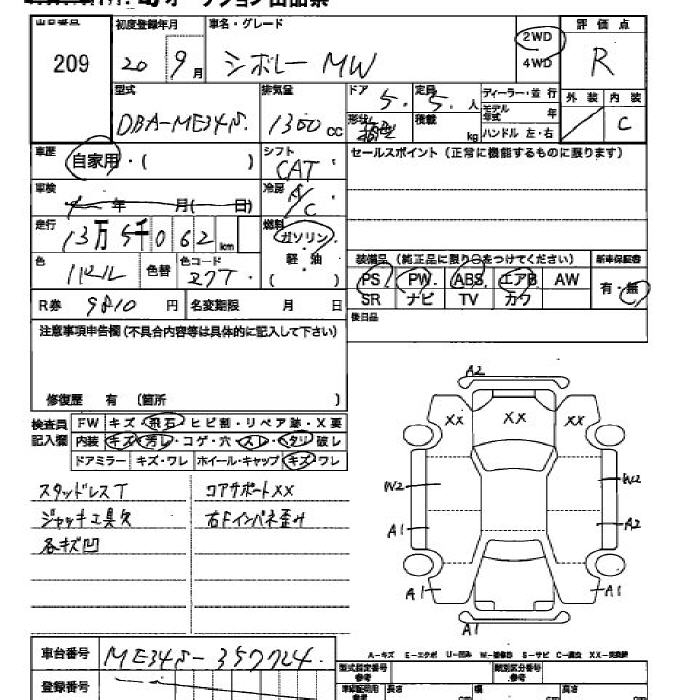 オークション出品票
出品番号 初度登録年月 車名・グレード 2WD 評価点
209 20 9月 シボレーMW 4WD R
型式 排気量 ドア 定員 ディーラー・並行 外装 内装
DBA-ME34S 1300cc 5 5人 モデル年式 年 C
形状 箱型 積載 kg ハンドル 左・右
車歴 自家用・( ) シフト CAT セールスポイント(正常に機能するものに限ります)
車検 年 月(日) 冷房 A/C
走行 13万5千062km 燃料 ガソリン・軽油 ( )
色 パール 色替 色コード ZJT 装備品(純正品に限り○をつけてください) 新車保証書
PS PW ABS エアB AW 有・無
R券 9810円 名変期限 月 日 SR ナビ TV カワ
後日品
注意事項申告欄(不具合内容等は具体的に記入して下さい)
修復歴 有 〔箇所 〕
検査員記入欄 FW キズ・飛石・ヒビ割・リペア跡・X要
内装 キズ・汚レ・コゲ・穴・スレ・ヘタリ・破レ
ドアミラー キズ・ワレ ホイール・キャップ キズ・ワレ
スタッドレスT コアサポートXX
ジャッキ工具欠 右Fインパネ歪み
各キズ凹
A2
XX XX XX
W2 W2
A1 A2
A1 A1
A1
A-キズ E-エクボ U-凹み W-補修跡 S-サビ C-腐食 XX-交換跡
車台番号 ME34S-357724
型式指定番号 参考 類別区分番号 参考
登録番号 長さ cm 幅 cm 高さ cm